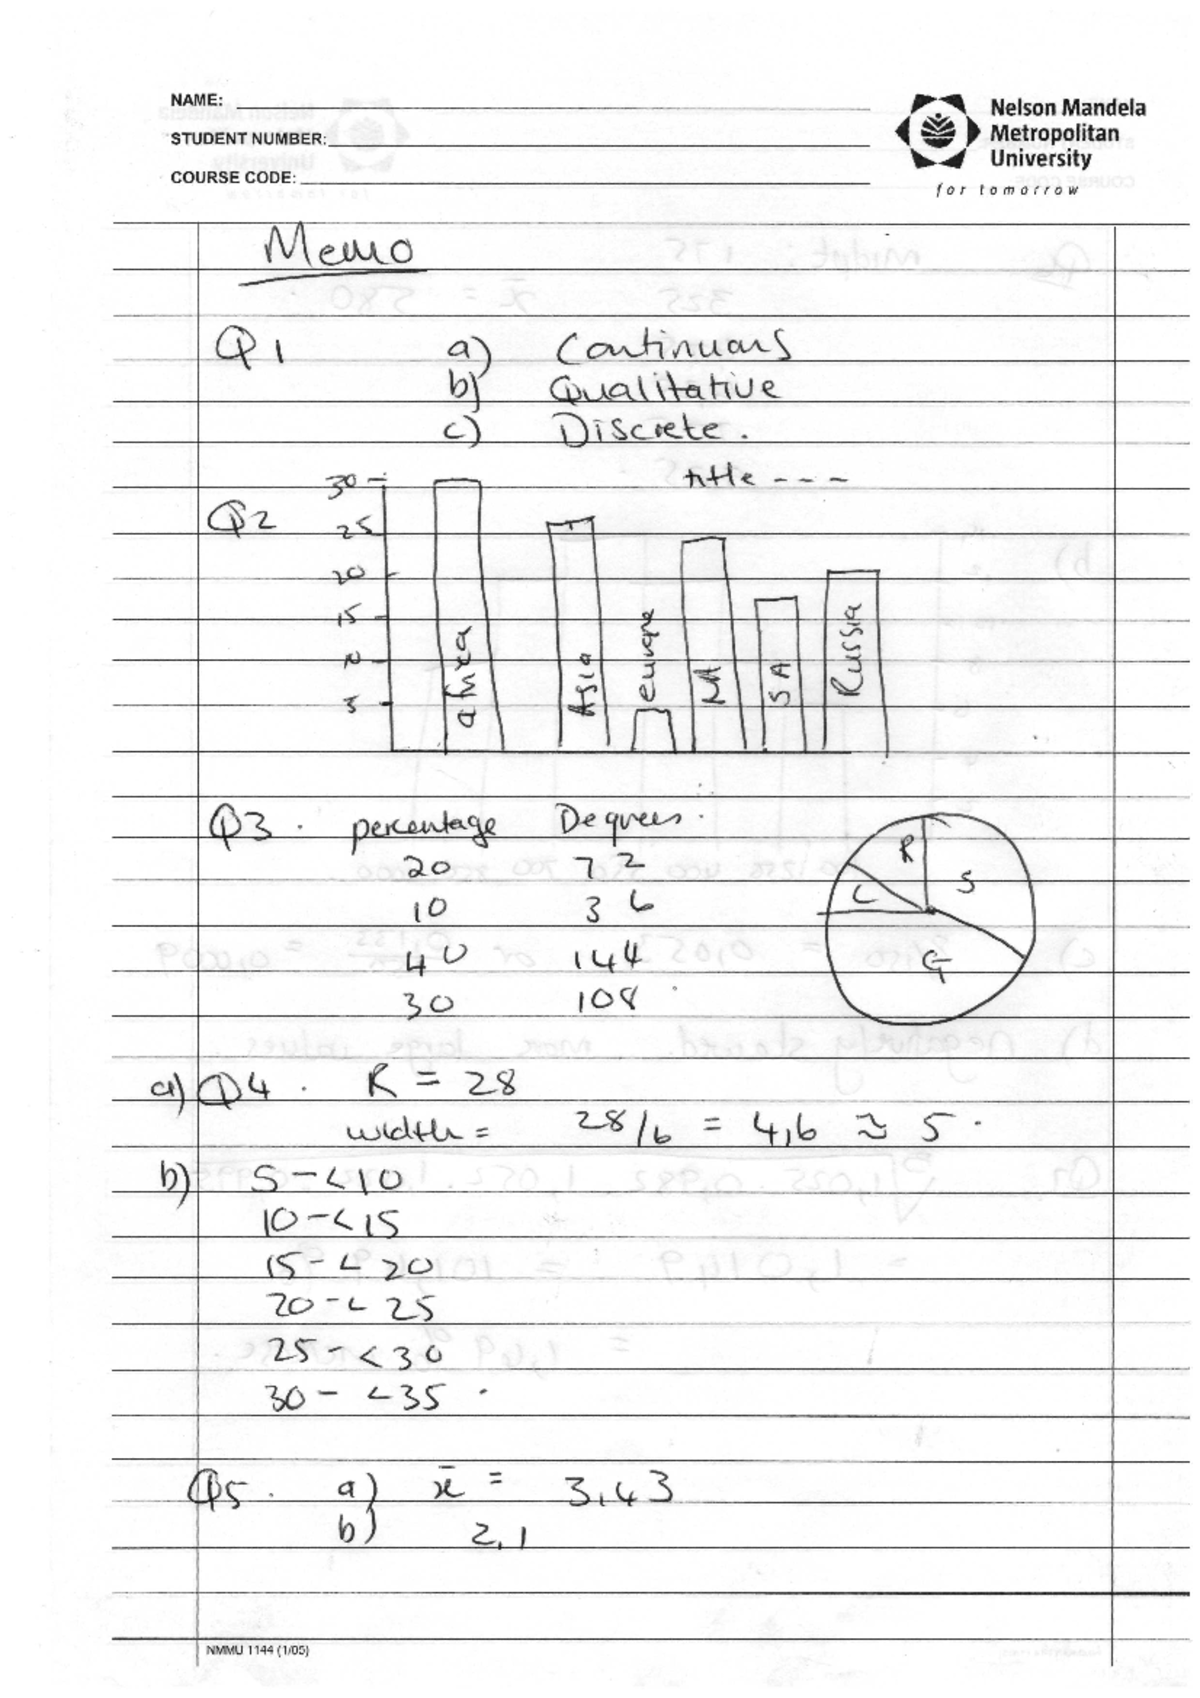 NAME:
STUDENT NUMBER:
COURSE CODE:
Nelson Mandela
Metropolitan
University
for tomorrow
Memo
Q1 a) Continuous
b) Qualitative
c) Discrete.
title - - -
Q2
30
25
20
15
10
5
africa
Asia
europe
NA
SA
Russia
Q3. percentage Degrees.
20 72
10 36
40 144
30 108
R
C
S
G
a) Q4. R = 28
width = 28/6 = 4,6 ≈ 5.
b) 5 - <10
10 - <15
15 - < 20
20 - < 25
25 - < 30
30 - < 35.
Q5. a) x̄ = 3,43
b) 2,1
NMMU 1144 (1/05)